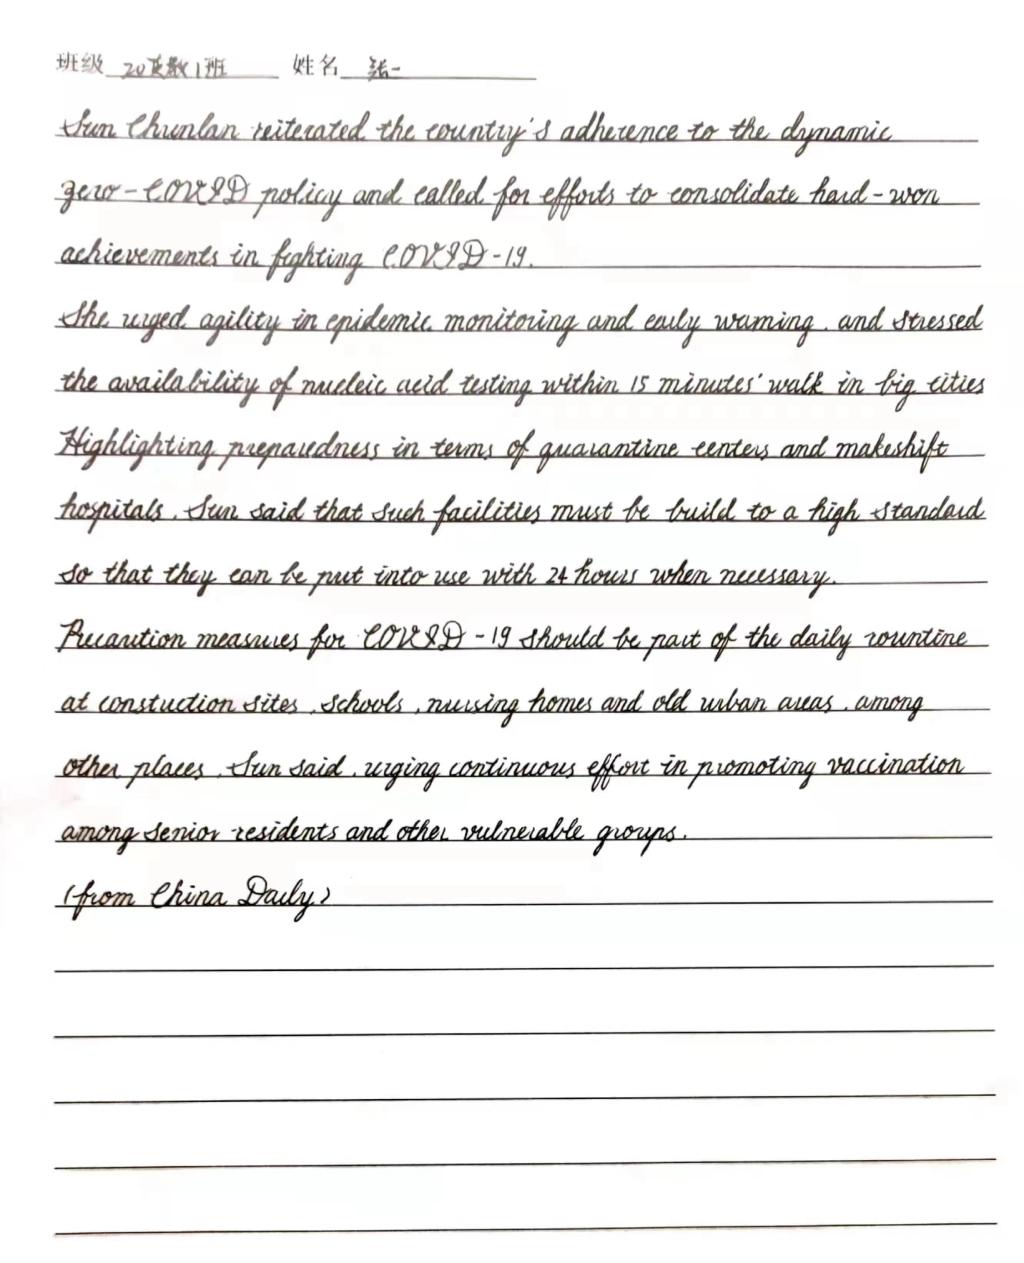 班级 20英教1班 姓名 张一
Sun Chunlan reiterated the country's adherence to the dynamic
zero-COVID policy and called for efforts to consolidate hard-won
achievements in fighting COVID-19.
She urged agility in epidemic monitoring and early warning, and stressed
the availability of nucleic acid testing within 15 minutes' walk in big cities
Highlighting preparedness in terms of quarantine centers and makeshift
hospitals, Sun said that such facilities must be build to a high standard
so that they can be put into use with 24 hours when necessary.
Precaution measures for COVID-19 should be part of the daily rountine
at constuction sites, schools, nursing homes and old urban areas, among
other places, Sun said, urging continuous effort in promoting vaccination
among senior residents and other vulnerable groups.
(from China Daily)